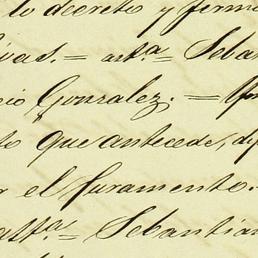 lo decreto y firm
ivas. = art.a = Seban
cio Gonzalez. =
to que antecede, di
r el Juramento.
att.a = Sebastian